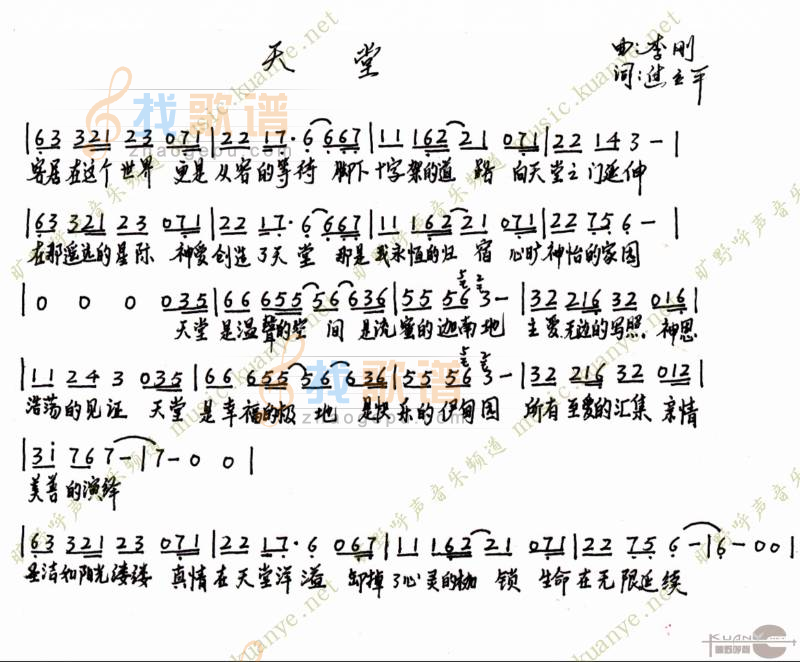 天 堂
曲:李刚
词:焦立平
|63 321 23 071|22 17·6 667|11 162 21 071|22 143-|
客居在这个世界 更是从容的等待 脚下十字架的道 路 向天堂之门延伸
|63 321 23 071|22 17·6 667|11 162 21 071|22 756-|
在那遥远的星际 神爱创造了天堂 那是我永恒的归 宿 心旷神怡的家园
|0 0 0 035|66 655 56 636|55 5563-|32 216 32 016|
天堂 是温馨的空 间 是流蜜的迦南地 主爱无边的写照 神恩
|11 243 035|66 655 56 636|55 5563-|32 216 32 012|
浩荡的见证 天堂 是幸福的极 地 是快乐的伊甸园 所有至爱的汇集 亲情
|3i 767-|7-0 0|
美善的演绎
|63 321 23 071|22 17·6 067|11 162 21 071|22 756-|6-00|
圣洁和阳光缕缕 真情在天堂洋溢 卸掉了心灵的枷 锁 生命在无限延续
找歌谱
zhaogepu.com
旷野呼声音乐频道 music.kuanye.net
KUANYE
旷野呼声